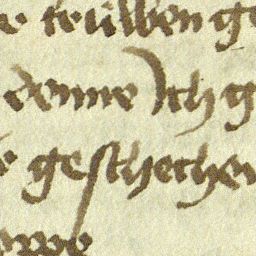 e teüwen ge
denne Ich g
e geschechen